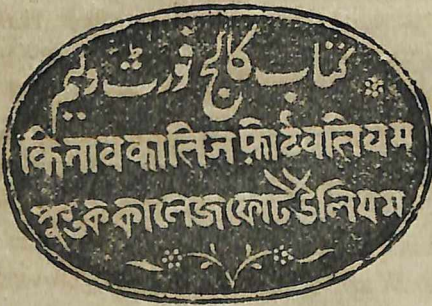 کتاب کالج فورٹ ولیم
किताव कालिज फ़ोर्टवलियम
পুস্তক কালেজ ফোর্ট উলিয়ম